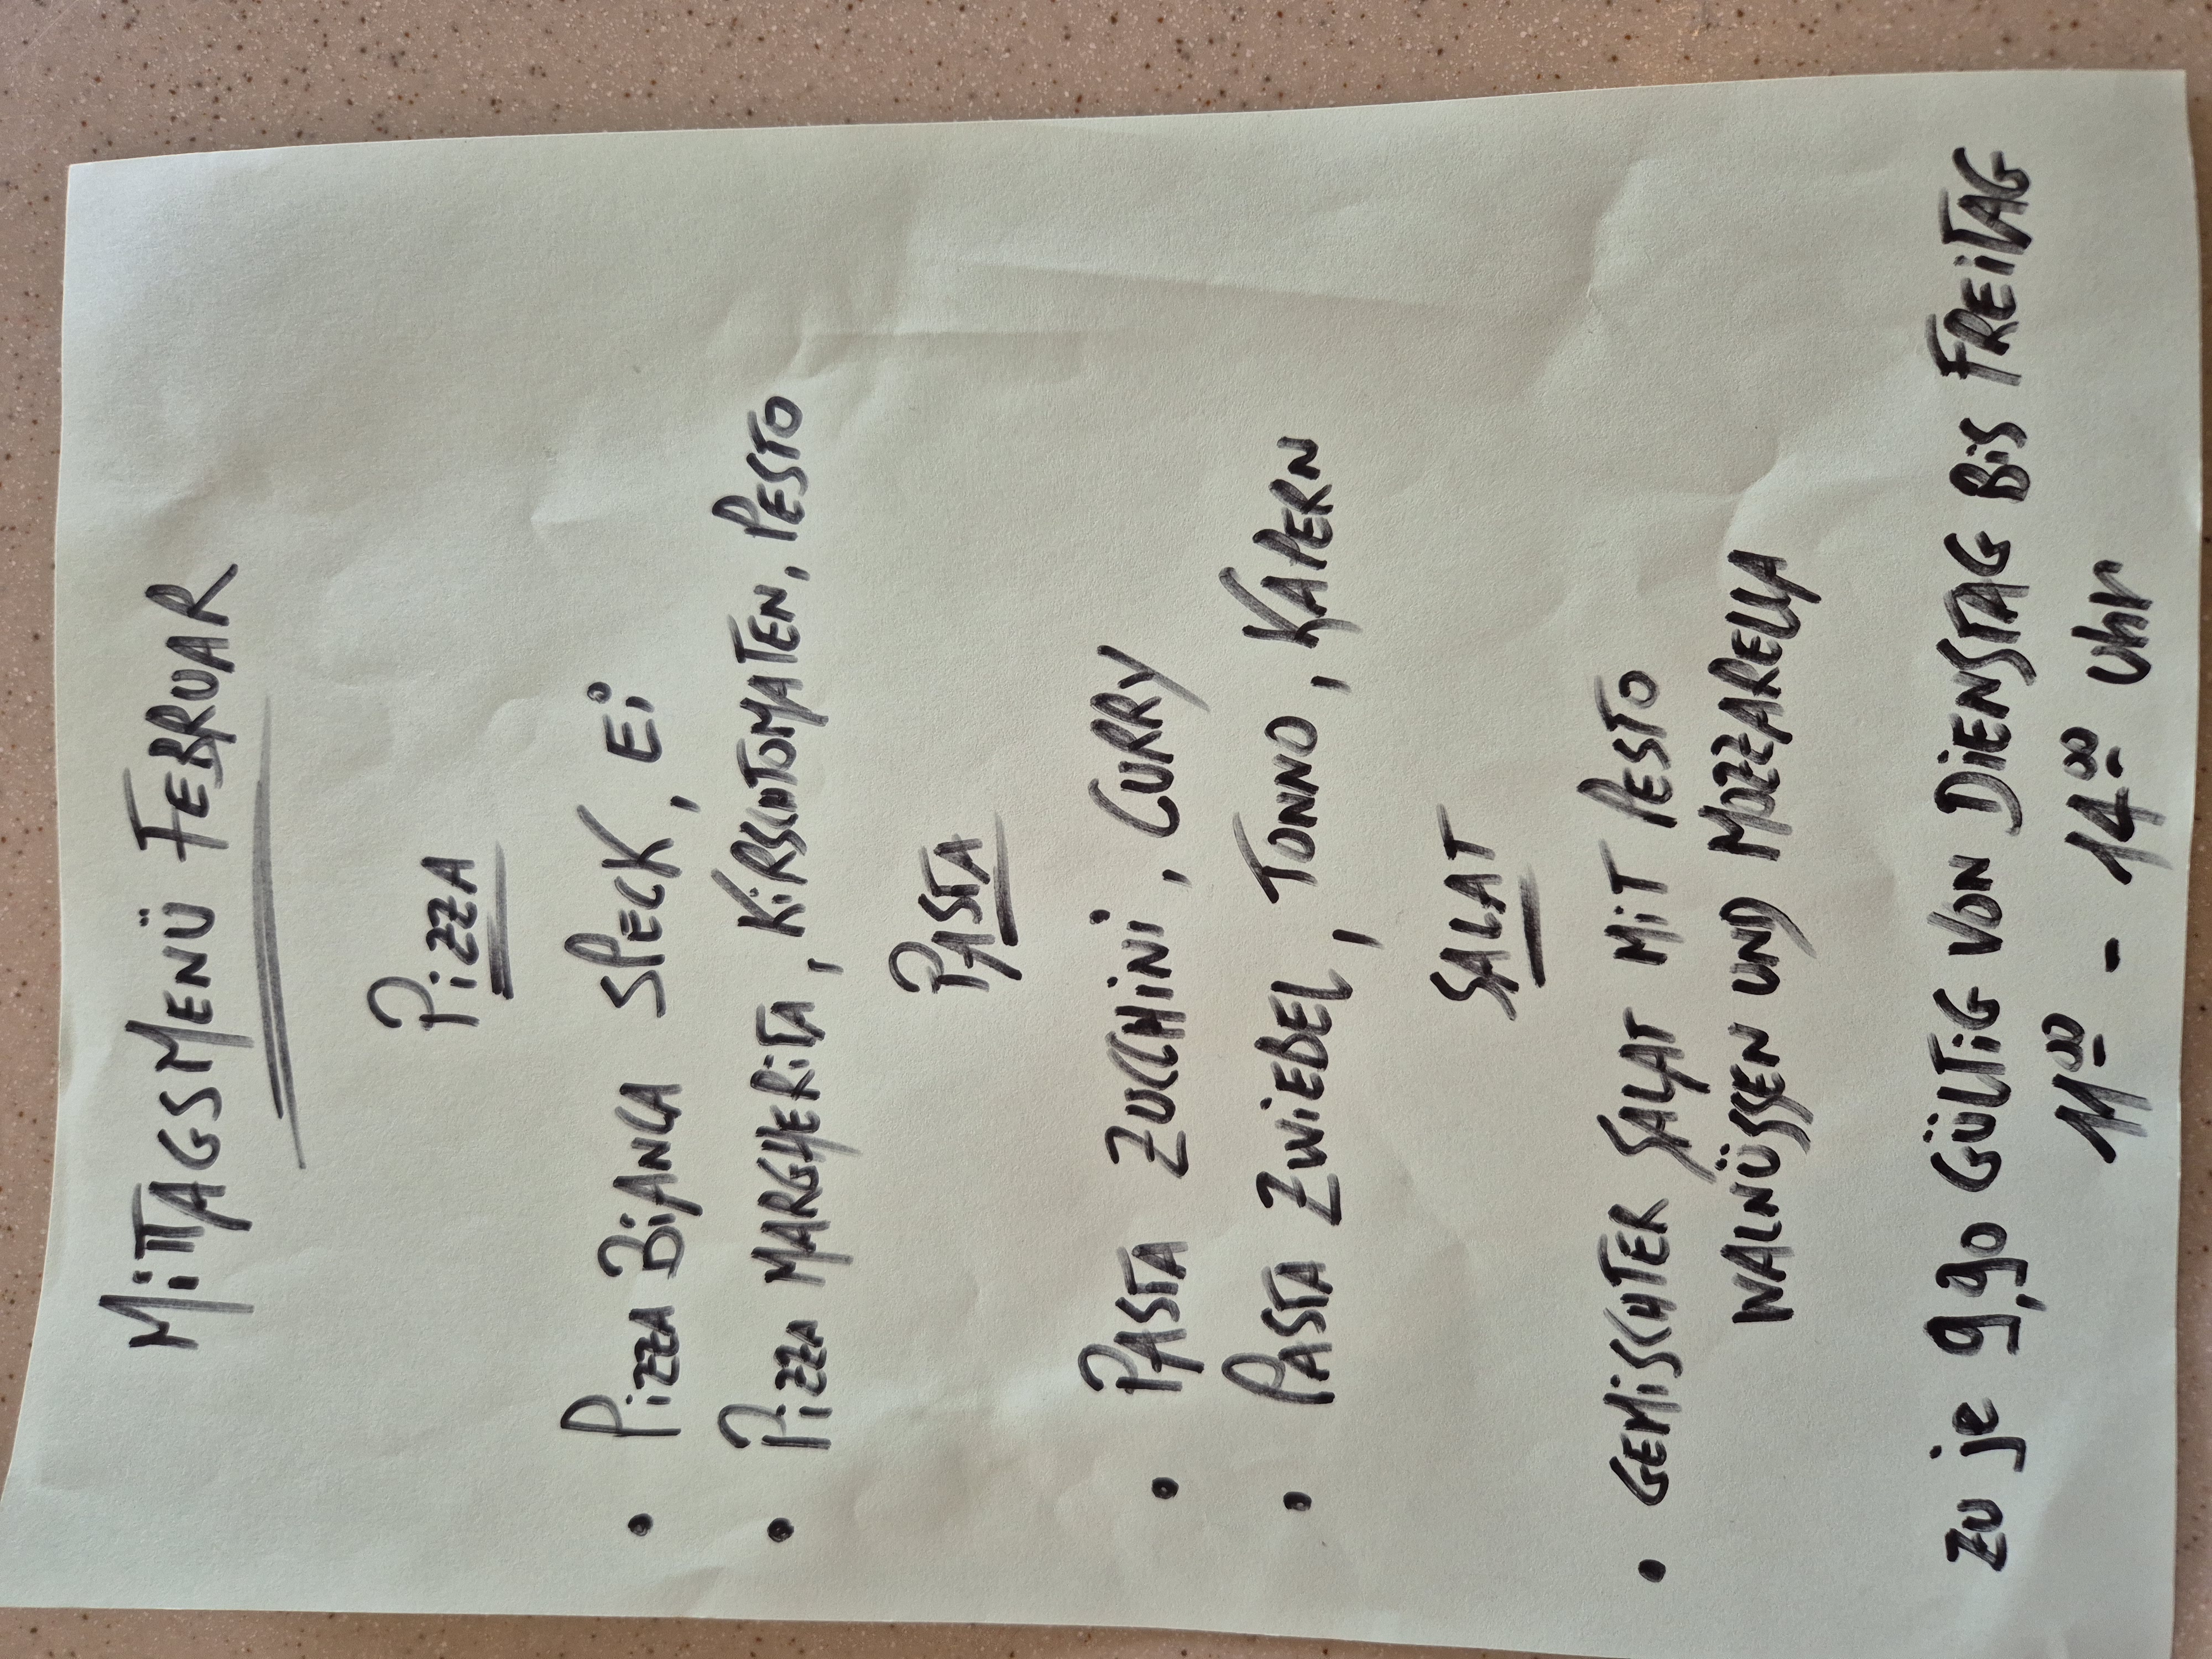 MiTTAGSMENÜ FEBRUAR
PiZZA
• PiZZA BiANCA SPECK, Ei
• PiZZA MARGHERiTA, KiRSCHTOMATEN, PESTO
PASTA
• PASTA ZUCCHiNi, CURRY
• PASTA ZWiEBEL, TONNO, KAPERN
SALAT
• GEMiSCHTER SALAT MiT PESTO
WALNÜSSEN UND MOZZARELLA
Zu je 9,90 GÜLTiG VON DiENSTAG BiS FREiTAG
11⁰⁰ - 14⁰⁰ Uhr